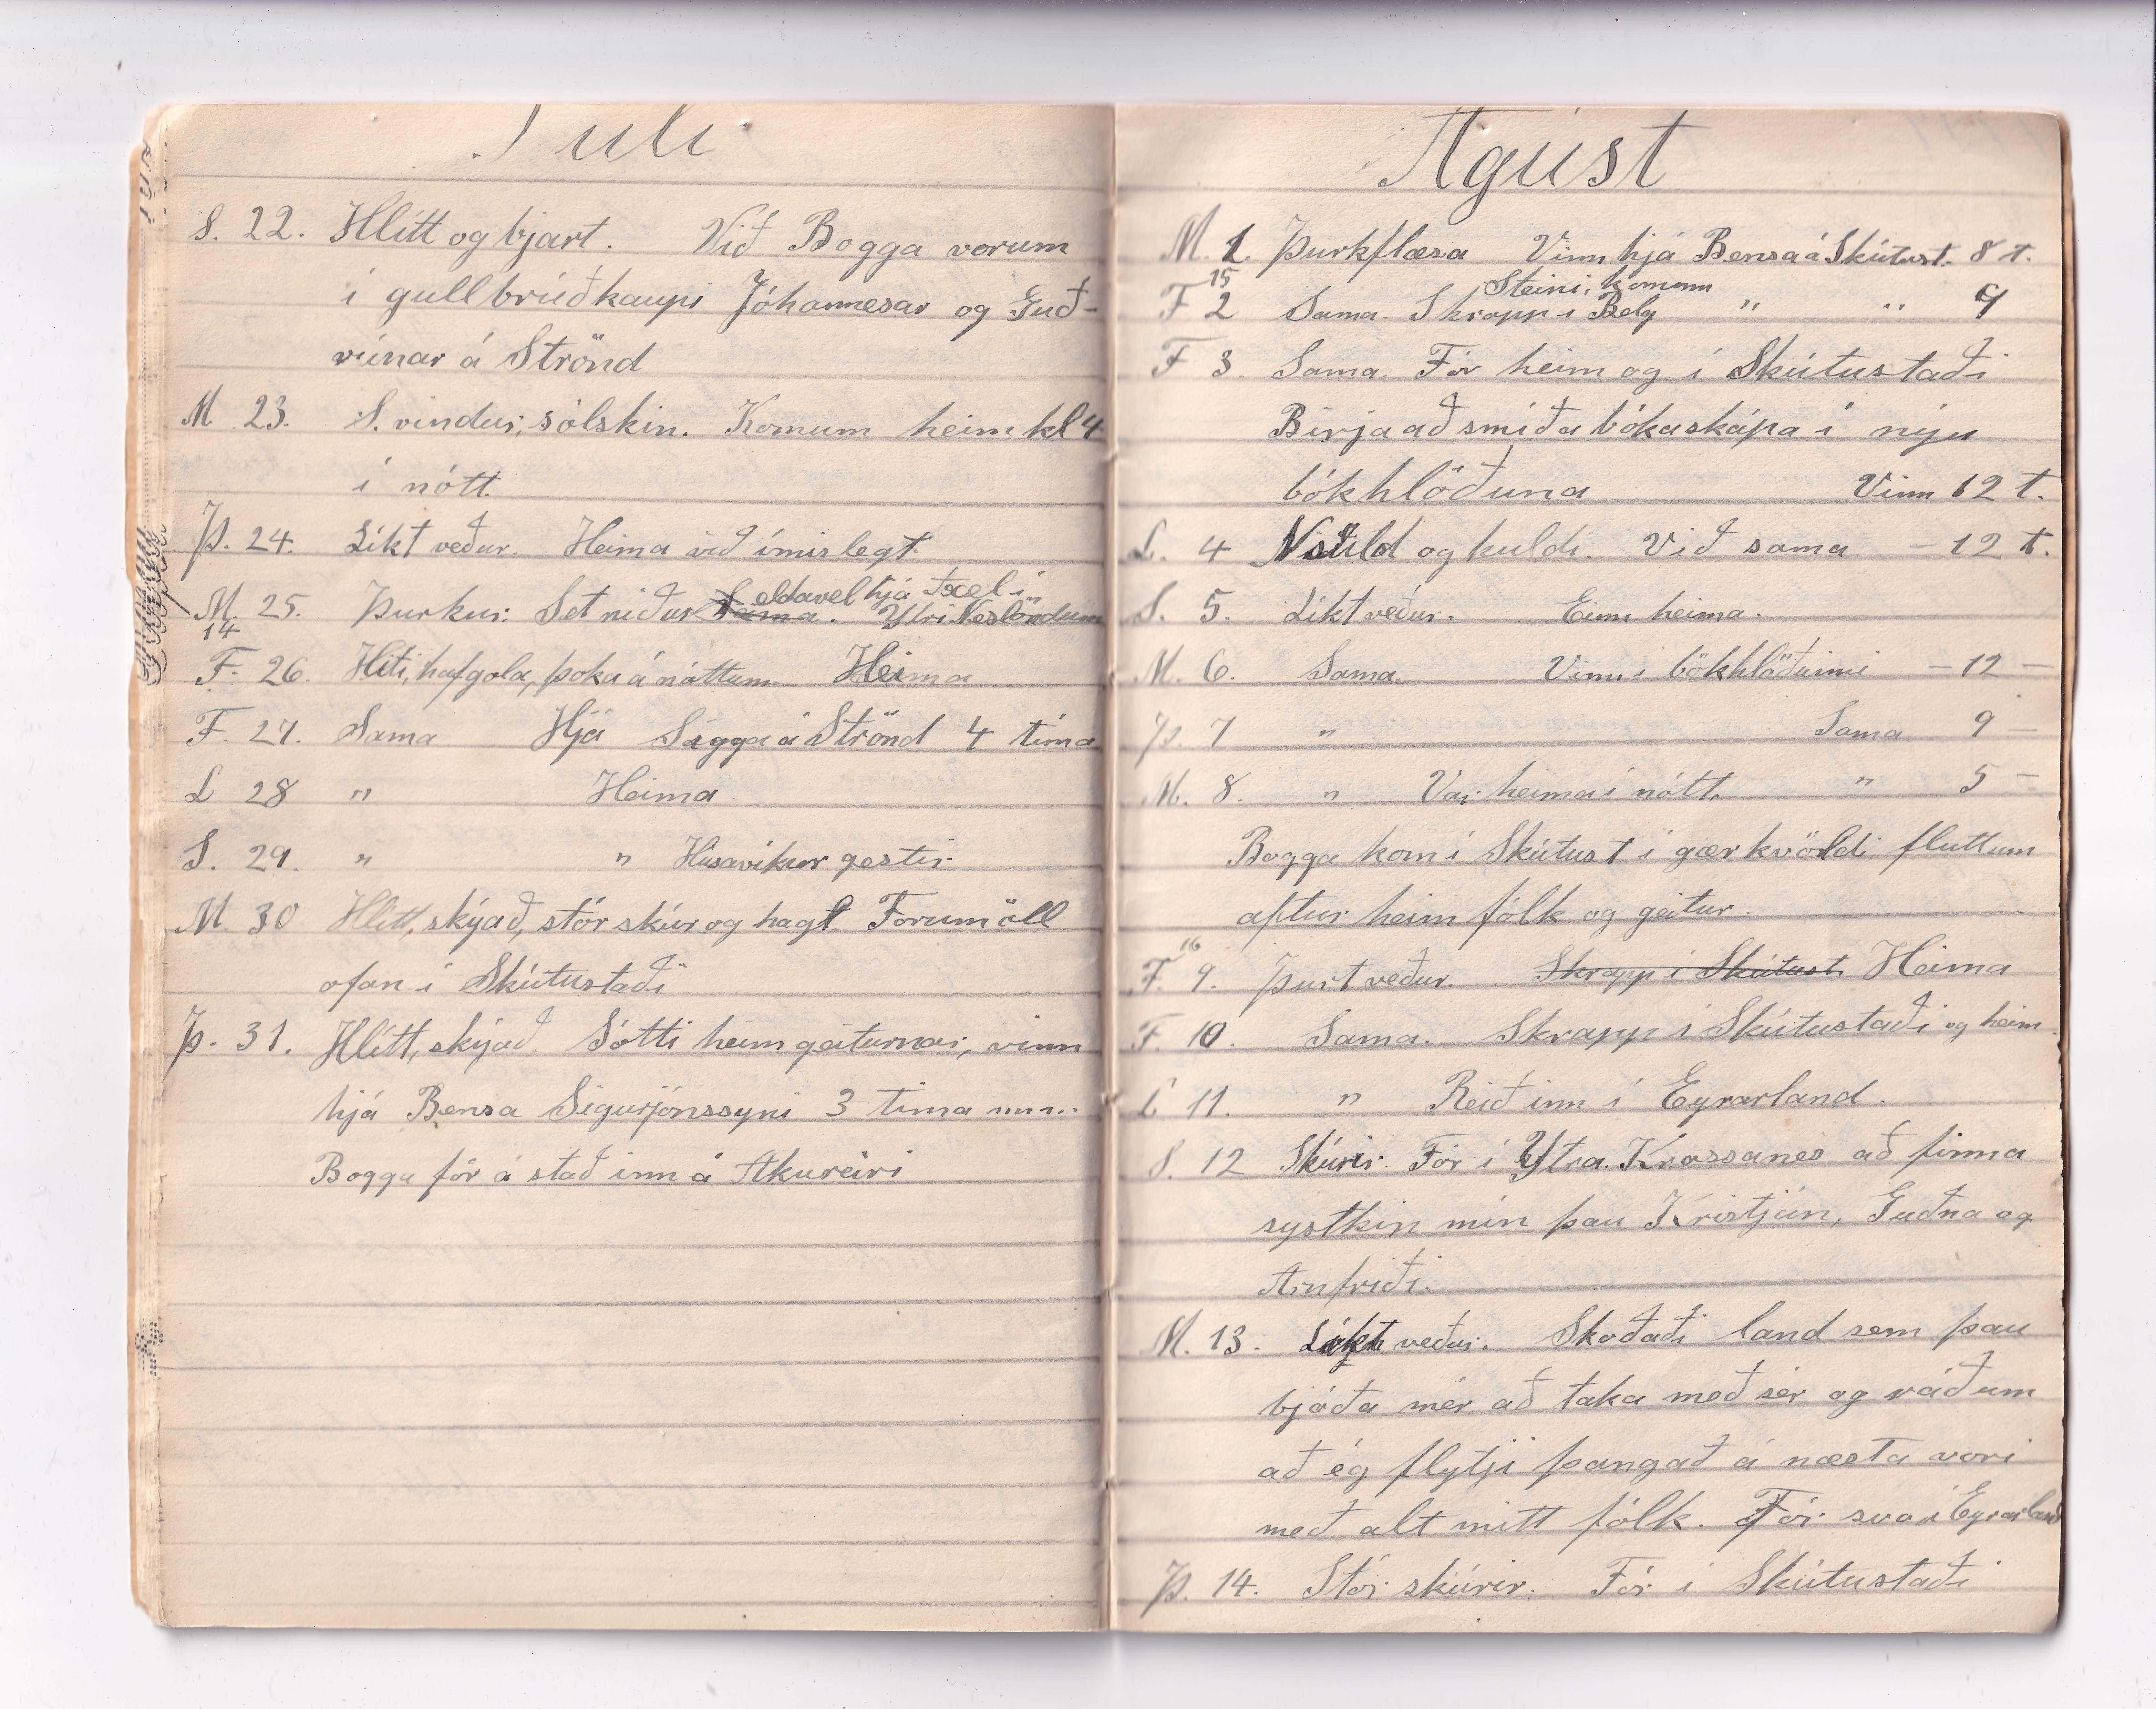 Júlí
S. 22. Hlítt og bjart. Við Bogga vorum
í gullbrúðkaupi Jóhannesar og Guð-
rúnar á Strönd
M 23. S. vindur, sólskin. Komum heim kl 4
í nótt.
Þ. 24. Líkt veður. Heima við ímislegt.
eldavel hjá Axel í
M. 25. Þurkur. Set niður Sama. Ytri Neslöndum
14
F. 26. Hiti, hafgola, þoka á nóttum Heima
F. 27. Sama Hjá Sigga á Strönd 4 tíma
L 28 " Heima
S. 29. " " Húsavíkur gestir
M. 30 Hlítt, skýað, stór skúr og hagl Forum öll
ofan í Skútustaði
Þ. 31. Hlítt, skýað. Sótti heim geiturnar, vinn
hjá Bensa Sigurjónssyni 3 tíma
Bogga fór á stað inn á Akureiri
Ágúst
M. 1. Þurkflæsa Vinn hjá Bensa á Skútust. 8 t.
15 Steini, komum
F 2 Sama. Skrapp í Belg " " 9
F 3. Sama. Fór heim og í Skútustaði
Birja að smíða bókaskápa í níju
bókhlöðuna Vinn 12 t.
L. 4 og kuldi. Við sama – 12 t.
S. 5. Líkt veður. Einn heima.
M. 6. Sama Vinn í bókhlöðunni – 12 –
Þ. 7 " Sama 9 –
M. 8. " Var heima í nótt. " 5 –
Bogga kom í Skútust í gærkvöldi, fluttum
aftur heim fólk og geitur.
16
F. 9. Þurt veður. Skrapp í Skútust. Heima
F. 10. Sama. Skrapp í Skútustaði og heim.
L 11. " Reið inn í Eyrarland.
S. 12 Skúrir. Fór í Ytra. Krossanes að finna
systkin mín þau Kristján, Guðna og
Arnfríði.
M. 13. Líkt veður. Skoðaði land sem þau
bjóða mér að taka með sér og ráðum
að ég flytji þangað á næsta vori
með alt mitt fólk. Fór svo í Eyrarland
Þ. 14. Stór skúrir. Fór í Skútustaði